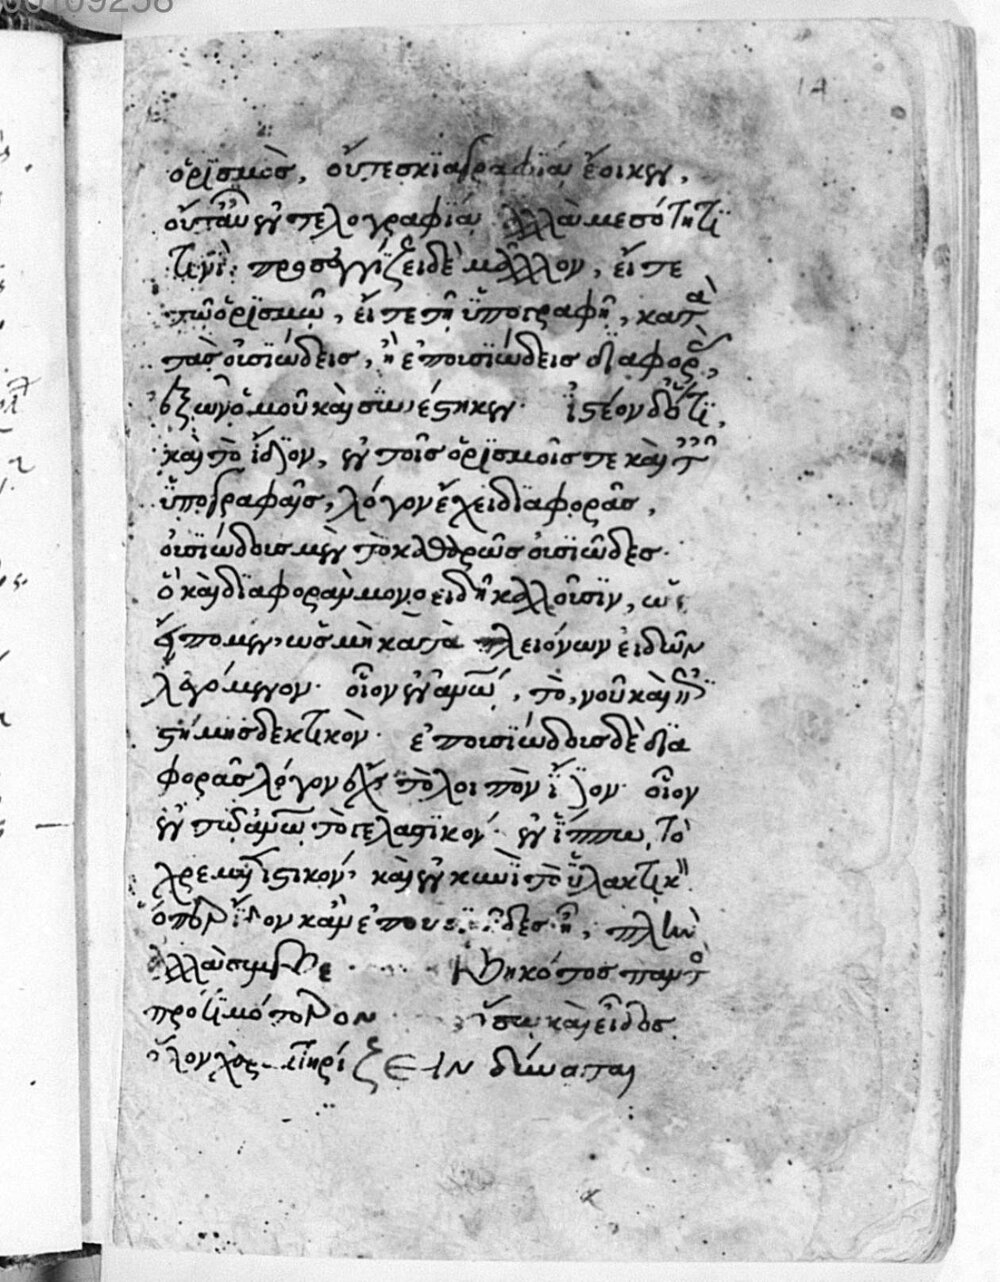 00109258
14
ὁρισμὸς, οὔτε σκιαγραφία ἔοικεν,
οὔτ' αὖ ἐν τελογραφία ἀλλὰ μεσότητι
τινί: προσεγγίζει δὲ μᾶλλον, εἴτε
τῶ ὁρισμῶ, εἴτε τῆ ὑπογραφῆ, κατὰ
τὰς οὐσιώδεις, ἢ ἐπουσιώδεις διαφορὰς,
ἐξ ὧν ὁμοῦ καὶ συνέστηκεν. ἰστέον δ' ὅτι,
καὶ τὸ ἴδιον, ἐν τοῖς ὁρισμοῖς τε καὶ ταῖς
ὑπογραφαῖς, λόγον ἔχει διαφορᾶς,
οὐσιώδους μὲν τὸ καθαρῶς οὐσιῶδες.
ὃ καὶ διαφορὰν μονοειδῆ καλοῦσιν, ὡς
εἴπομεν, ὡς μὴ κατὰ πλειόνων εἰδῶν
λεγόμενον. οἷον ἐν ἀνθρώπω, τὸ, νοῦ καὶ ἐπι
στήμης δεκτικὸν. ἐπουσιώδους δὲ δια
φορᾶς λόγον ἔχει τὸ λοιπὸν ἴδιον. οἷον
ἐν τῶ ἀνθρώπω τὸ γελαστικόν. ἐν ἵππω, τὸ
χρεμετιστικόν, καὶ ἐν κυνὶ τὸ ὑλακτικόν.
ὁπότερον κἂν ἐπουσιῶδες ἦ, πλὴν
ἀλλὰ συμβε
προτιμότερον καὶ εἶδος
ὅλον χαρακτηρίζειν δύναται